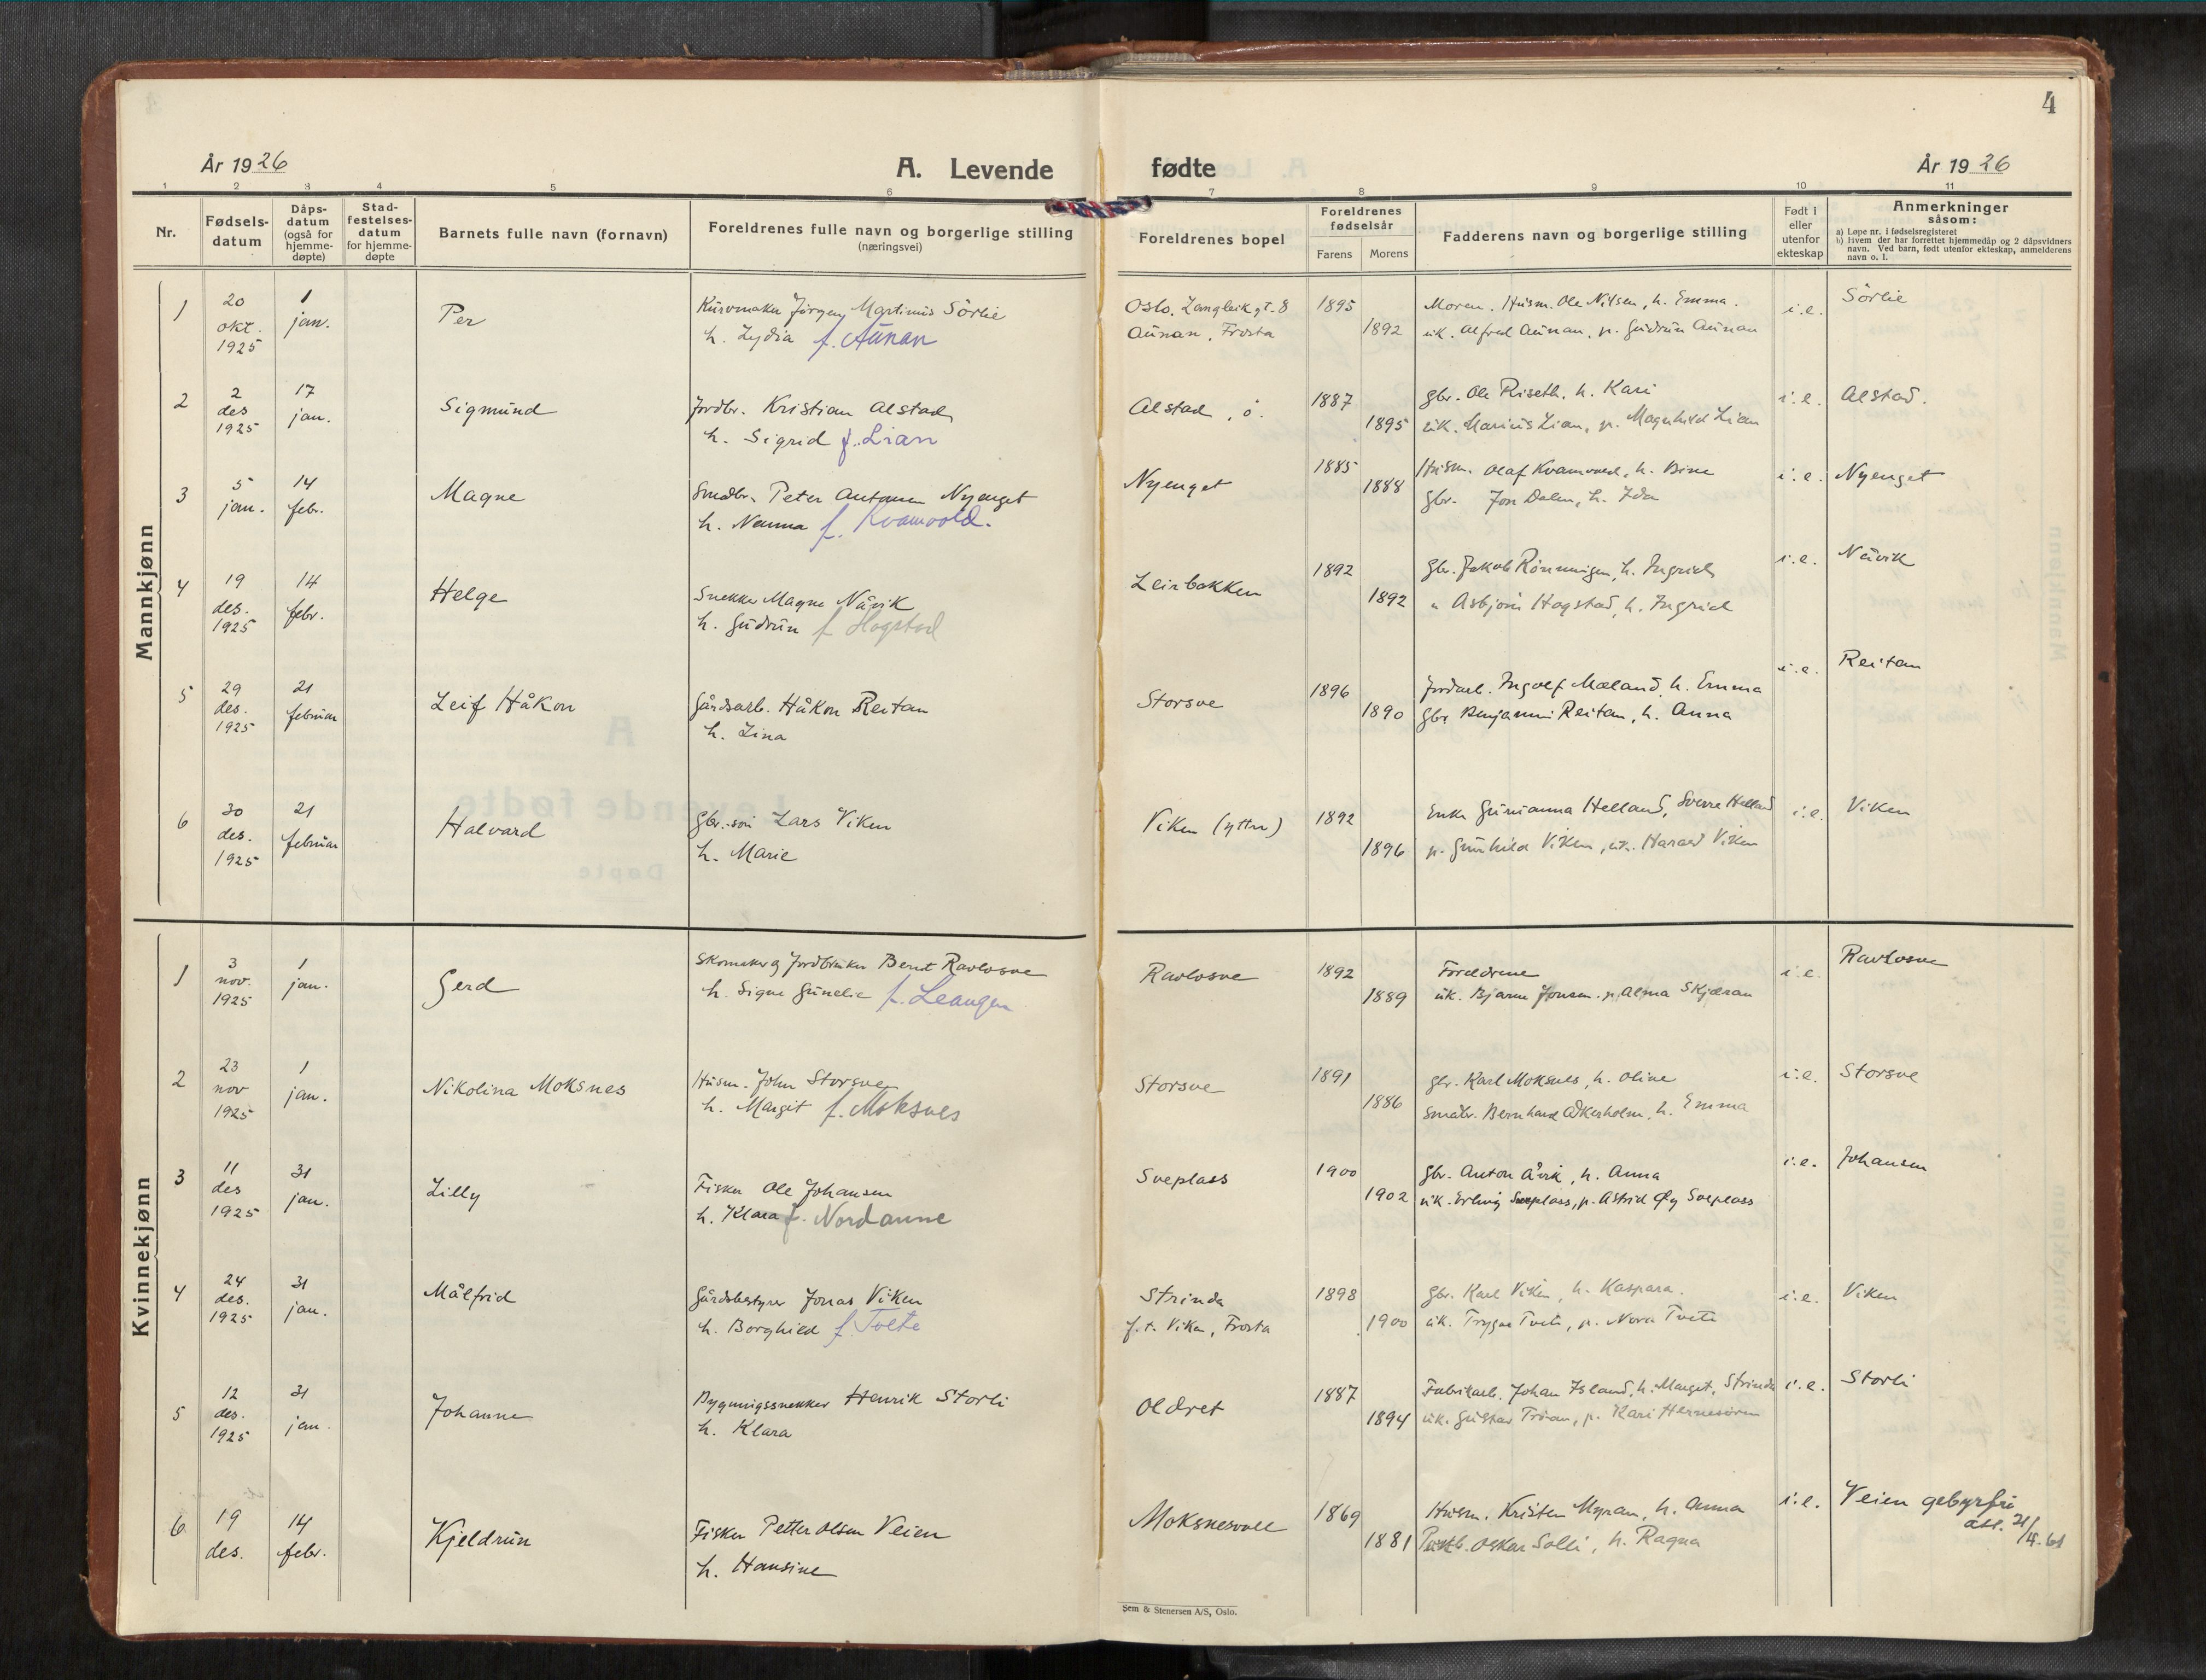 4
År 1926
A. Levende
fødte
År 1926
1 2 3 4 5 6 7 8 9 10 11
Nr.
Fødsels-
datum
Dåps-
datum
(også for
hjemme-
døpte)
Stad-
festelses-
datum
for hjemme-
døpte
Barnets fulle navn (fornavn)
Foreldrenes fulle navn og borgerlige stilling
(næringsvei)
Foreldrenes bopel
Foreldrenes
fødselsår
Farens Morens
Fadderens navn og borgerlige stilling
Født i
eller
utenfor
ekteskap
Anmerkninger
såsom:
a) Løpe nr. i fødselsregisteret
b) Hvem der har forrettet hjemmedåp og 2 dåpsvidners
navn. Ved barn, født utenfor ekteskap, anmelderens
navn o. l.
Mannkjønn
1
20
okt.
1925
1
jan.
Per
Kurvmaker Jörgen Martinus Sörlie
h. Lydia f. Aunan
Oslo, Langleikgt. 8
Aunan, Frosta
1895
1892
Moren. Husm. Ole Nilsen, h. Emma.
uk. Alfred Aunan, p. Gudrun Aunan
i.e.
Sörlie
2
2
des
1925
17
jan.
Sigmund
Jordbr. Kristian Alstad
h. Sigrid f. Lian
Alstad, ö.
1887
1895
Gbr. Ole Riseth, h. Kari
uk. Marius Lian, p. Magnhild Lian
i.e.
Alstad.
3
5
jan.
14
febr.
Magne
Småbr. Peter Antonsen Nyenget
h. Nanna f. Kvamvold.
Nyenget
1885
1888
Husm. Olaf Kvamvold, h. Bine
Gbr. Jon Dalen, h. Ida
i.e.
Nyenget
4
19
des.
1925
14
febr.
Helge
Snekker Magne Nåvik
h. Gudrun f. Hogstad
Leirbakken
1892
1892
Gbr. Jakob Rönningen, h. Ingrid
" Asbjörn Hogstad, h. Ingrid
i.e.
Nåvik
5
29
des.
1925
21
februar
Leif Håkon
Gårdsarb. Håkon Reitan
h. Lina
Storsve
1896
1890
Jordarb. Ingolf Mæland, h. Emma
Gbr. Benjamin Reitan, h. Anna
i.e.
Reitan
6
30
des.
1925
21
februar
Halvard
Gbr. sön Lars Viken
h. Marie
Viken (yttre)
1892
1896
Enke Gurianna Helland, Sverre Helland
p. Gunhild Viken, uk. Harald Viken
i.e.
Viken
Kvinnekjønn
1
3
nov.
1925
1
jan.
Gerd
Skomaker og Jordbruker Bernt Ravlosve
h. Signe Gunelie f. Leangen
Ravlosve
1892
1889
Foreldrene
uk. Bjarne Jonsen. p. Alma Skjæran
i.e.
Ravlosve
2
23
nov
1925
1
jan.
Nikolina Moksnes
Husm. John Storsve
h. Margit f. Moksnes
Storsve
1891
1886
gbr. Karl Moksnes, h. Oline
Småbr. Bernhard Akerholm, h. Emma
i.e.
Storsve
3
11
des
1925
31
jan.
Lilly
Fisker Ole Johansen
h. Klara f. Nordaune
Sveplass
1900
1902
Gbr. Anton Åvik, h. Anna
uk. Erling Sveplass, p. Astrid Öy Sveplass
i.e.
Johansen
4
24
des.
1925
31
jan.
Målfrid
Gårdsbestyrer Jonas Viken
h. Borghild f. Tvete
Strinda
f.t. Viken, Frosta
1898
1900
Gbr. Karl Viken, h. Kaspara.
uk. Trygve Tvete, p. Nora Tvete
i.e.
Viken
5
12
des.
1925
31
jan.
Johanne
Bygningssnekker Henrik Storli
h. Klara
Oldret
1887
1894
Fabrikarb. Johan Island, h. Margit, Strinda
uk. Gustav Tröan, p. Kari
i.e.
Storli
6
19
des.
14
febr.
Kjeldrun
Fisker Petter Olsen Veien
h. Hansine
Moksnesvoll
1869
1881
Husm. Kristen Myran, h. Anna
Oskar Solli, h. Ragna
i.e.
Veien gebyrfri
att. 21/4.61
Sem & Stenersen A/S, Oslo.